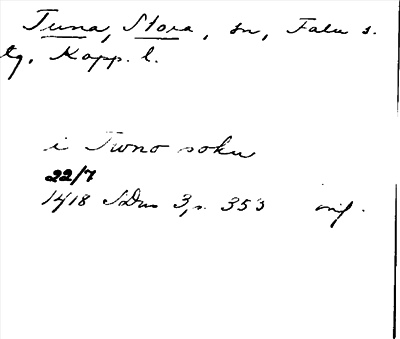 Tuna, Stora, sn, Falu s.
tg, Kopp. l.
i Twno sokn
22/7
1418 SDns 3, s. 353 orig.